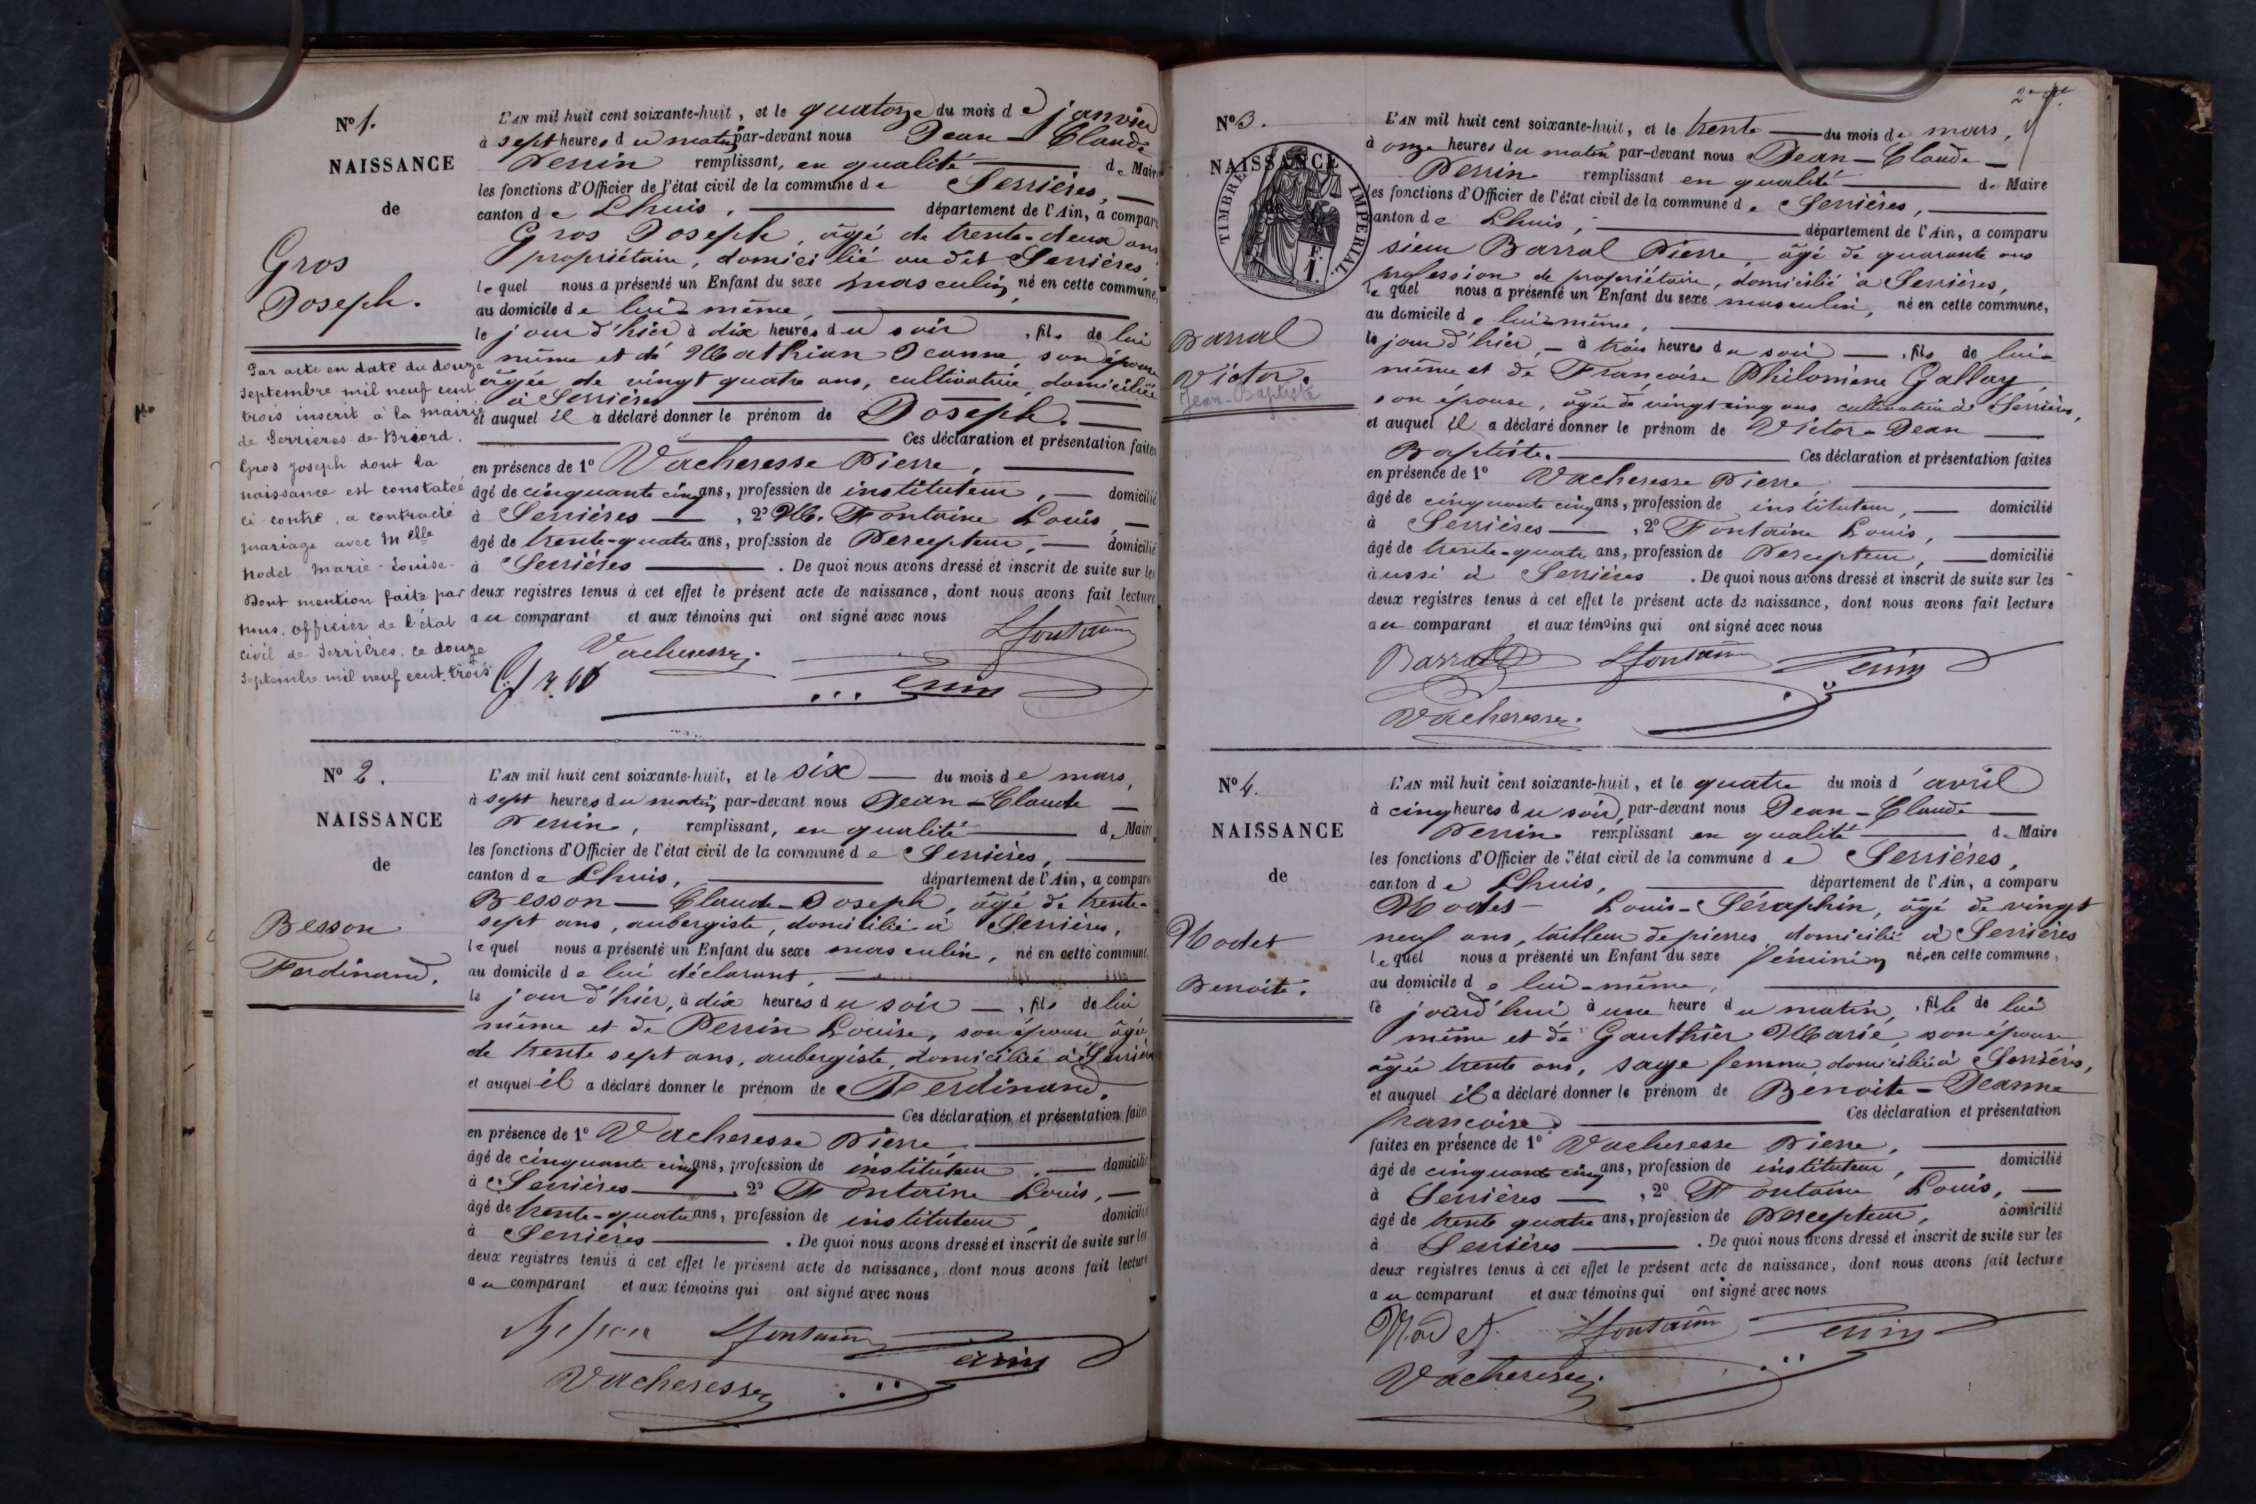 Nº 1.
NAISSANCE
de
Gros
Joseph.
Par acte en date du douze
septembre mil neuf cent
trois inscrit à la mairie
de Serrières-de-Briord.
Gros Joseph dont la
naissance est constatée
ci-contre, a contracté
mariage avec Melle
Modet Marie-Louise-
Dont mention faite par
nous, officier de l'état
civil de Serrières, ce douze
septembre mil neuf cent trois
L'AN mil huit cent soixante-huit, et le quatorze du mois de janvier
à sept heures du matin par-devant nous Jean-Claude
Perrin remplissant, en qualité de Maire
les fonctions d'Officier de l'état civil de la commune de Serrières,
canton de Lhuis, département de l'Ain, a comparu
Gros Joseph, âgé de trente-deux ans
propriétaire, domicilié au dit Serrières,
lequel nous a présenté un Enfant du sexe masculin, né en cette commune,
au domicile de lui-même,
le jour d'hier à dix heures du soir, fils de lui
même et de Mathian Jeanne, son épouse
âgée de vingt quatre ans, cultivatrice, domiciliée
à Serrières
et auquel il a déclaré donner le prénom de Joseph.
Ces déclaration et présentation faites
en présence de 1º Vacheresse Pierre,
âgé de cinquante cinq ans, profession de instituteur, domicilié
à Serrières, 2º M. Fontaine Louis
âgé de trente-quatre ans, profession de Percepteur, domicilié
à Serrières. De quoi nous avons dressé et inscrit de suite sur les
deux registres tenus à cet effet le présent acte de naissance, dont nous avons fait lecture
au comparant et aux témoins qui ont signé avec nous
Lfontaine
Vacheresse
Perrin
Nº 2.
NAISSANCE
de
Besson
Ferdinand.
L'AN mil huit cent soixante-huit, et le six du mois de mars,
à sept heures du matin, par-devant nous Jean-Claude
Perrin, remplissant, en qualité de Maire
les fonctions d'Officier de l'état civil de la commune de Serrières,
canton de Lhuis, département de l'Ain, a comparu
Besson Claude-Joseph, âgé de trente-
sept ans, aubergiste, domicilié à Serrières,
lequel nous a présenté un Enfant du sexe masculin, né en cette commune,
au domicile de lui déclarant,
le jour d'hier, à dix heures du soir, fils de lui
même et de Perrin Louise, son épouse âgée
de trente sept ans, aubergiste, domiciliée à Serrières
et auquel il a déclaré donner le prénom de Ferdinand.
Ces déclaration et présentation faites
en présence de 1º Vacheresse Pierre,
âgé de cinquante cinq ans, profession de instituteur, domicilié
à Serrières 2º Fontaine Louis,
âgé de trente-quatre ans, profession de instituteur, domicilié
à Serrières. De quoi nous avons dressé et inscrit de suite sur les
deux registres tenus à cet effet le présent acte de naissance, dont nous avons fait lecture
au comparant et aux témoins qui ont signé avec nous
Besson Lfontaine Perrin
Vacheresse
Nº 3.
NAISSANCE
TIMBRE IMPÉRIAL
F.
1.
Barral
Victor.
Jean-Baptiste
L'AN mil huit cent soixante-huit, et le trente du mois de mars,
à onze heures du matin par-devant nous Jean-Claude
Perrin remplissant en qualité de Maire
les fonctions d'Officier de l'état civil de la commune de Serrières,
canton de Lhuis, département de l'Ain, a comparu
sieur Barral Pierre, âgé de quarante ans
profession de propriétaire, domicilié à Serrières,
lequel nous a présenté un Enfant du sexe masculin, né en cette commune,
au domicile de lui-même,
le jour d'hier, à trois heures du soir, fils de lui-
même et de Françoise Philomène Gallay,
son épouse, âgée de vingt-cinq ans cultivatrice à Serrières,
et auquel il a déclaré donner le prénom de Victor-Jean
Baptiste. Ces déclaration et présentation faites
en présence de 1º Vacheresse Pierre
âgé de cinquante cinq ans, profession de instituteur, domicilié
à Serrières, 2º Fontaine Louis,
âgé de trente-quatre ans, profession de Percepteur, domicilié
aussi à Serrières. De quoi nous avons dressé et inscrit de suite sur les
deux registres tenus à cet effet le présent acte de naissance, dont nous avons fait lecture
au comparant et aux témoins qui ont signé avec nous
Barral Lfontaine Perrin
Vacheresse
Nº 4.
NAISSANCE
de
Modet
Benoite.
L'AN mil huit cent soixante-huit, et le quatre du mois d'avril
à cinq heures du soir, par-devant nous Jean-Claude
Perrin remplissant en qualité de Maire
les fonctions d'Officier de l'état civil de la commune de Serrières,
canton de Lhuis, département de l'Ain, a comparu
Modet Louis-Séraphin, âgé de vingt
neuf ans, tailleur de pierres domicilié à Serrières
lequel nous a présenté un Enfant du sexe féminin, né en cette commune,
au domicile de lui-même,
le jourd'hui à une heure du matin, fille de lui
même et de Gauthier Marie, son épouse
âgée trente ans, sage femme, domiciliée à Serrières,
et auquel il a déclaré donner le prénom de Benoite-Jeanne
françoise. Ces déclaration et présentation
faites en présence de 1º Vacheresse Pierre,
âgé de cinquante cinq ans, profession de instituteur, domicilié
à Serrières, 2º Fontaine Louis,
âgé de trente quatre ans, profession de Percepteur, domicilié
à Serrières. De quoi nous avons dressé et inscrit de suite sur les
deux registres tenus à cet effet le présent acte de naissance, dont nous avons fait lecture
au comparant et aux témoins qui ont signé avec nous
Modet. Lfontaine Perrin
Vacheresse